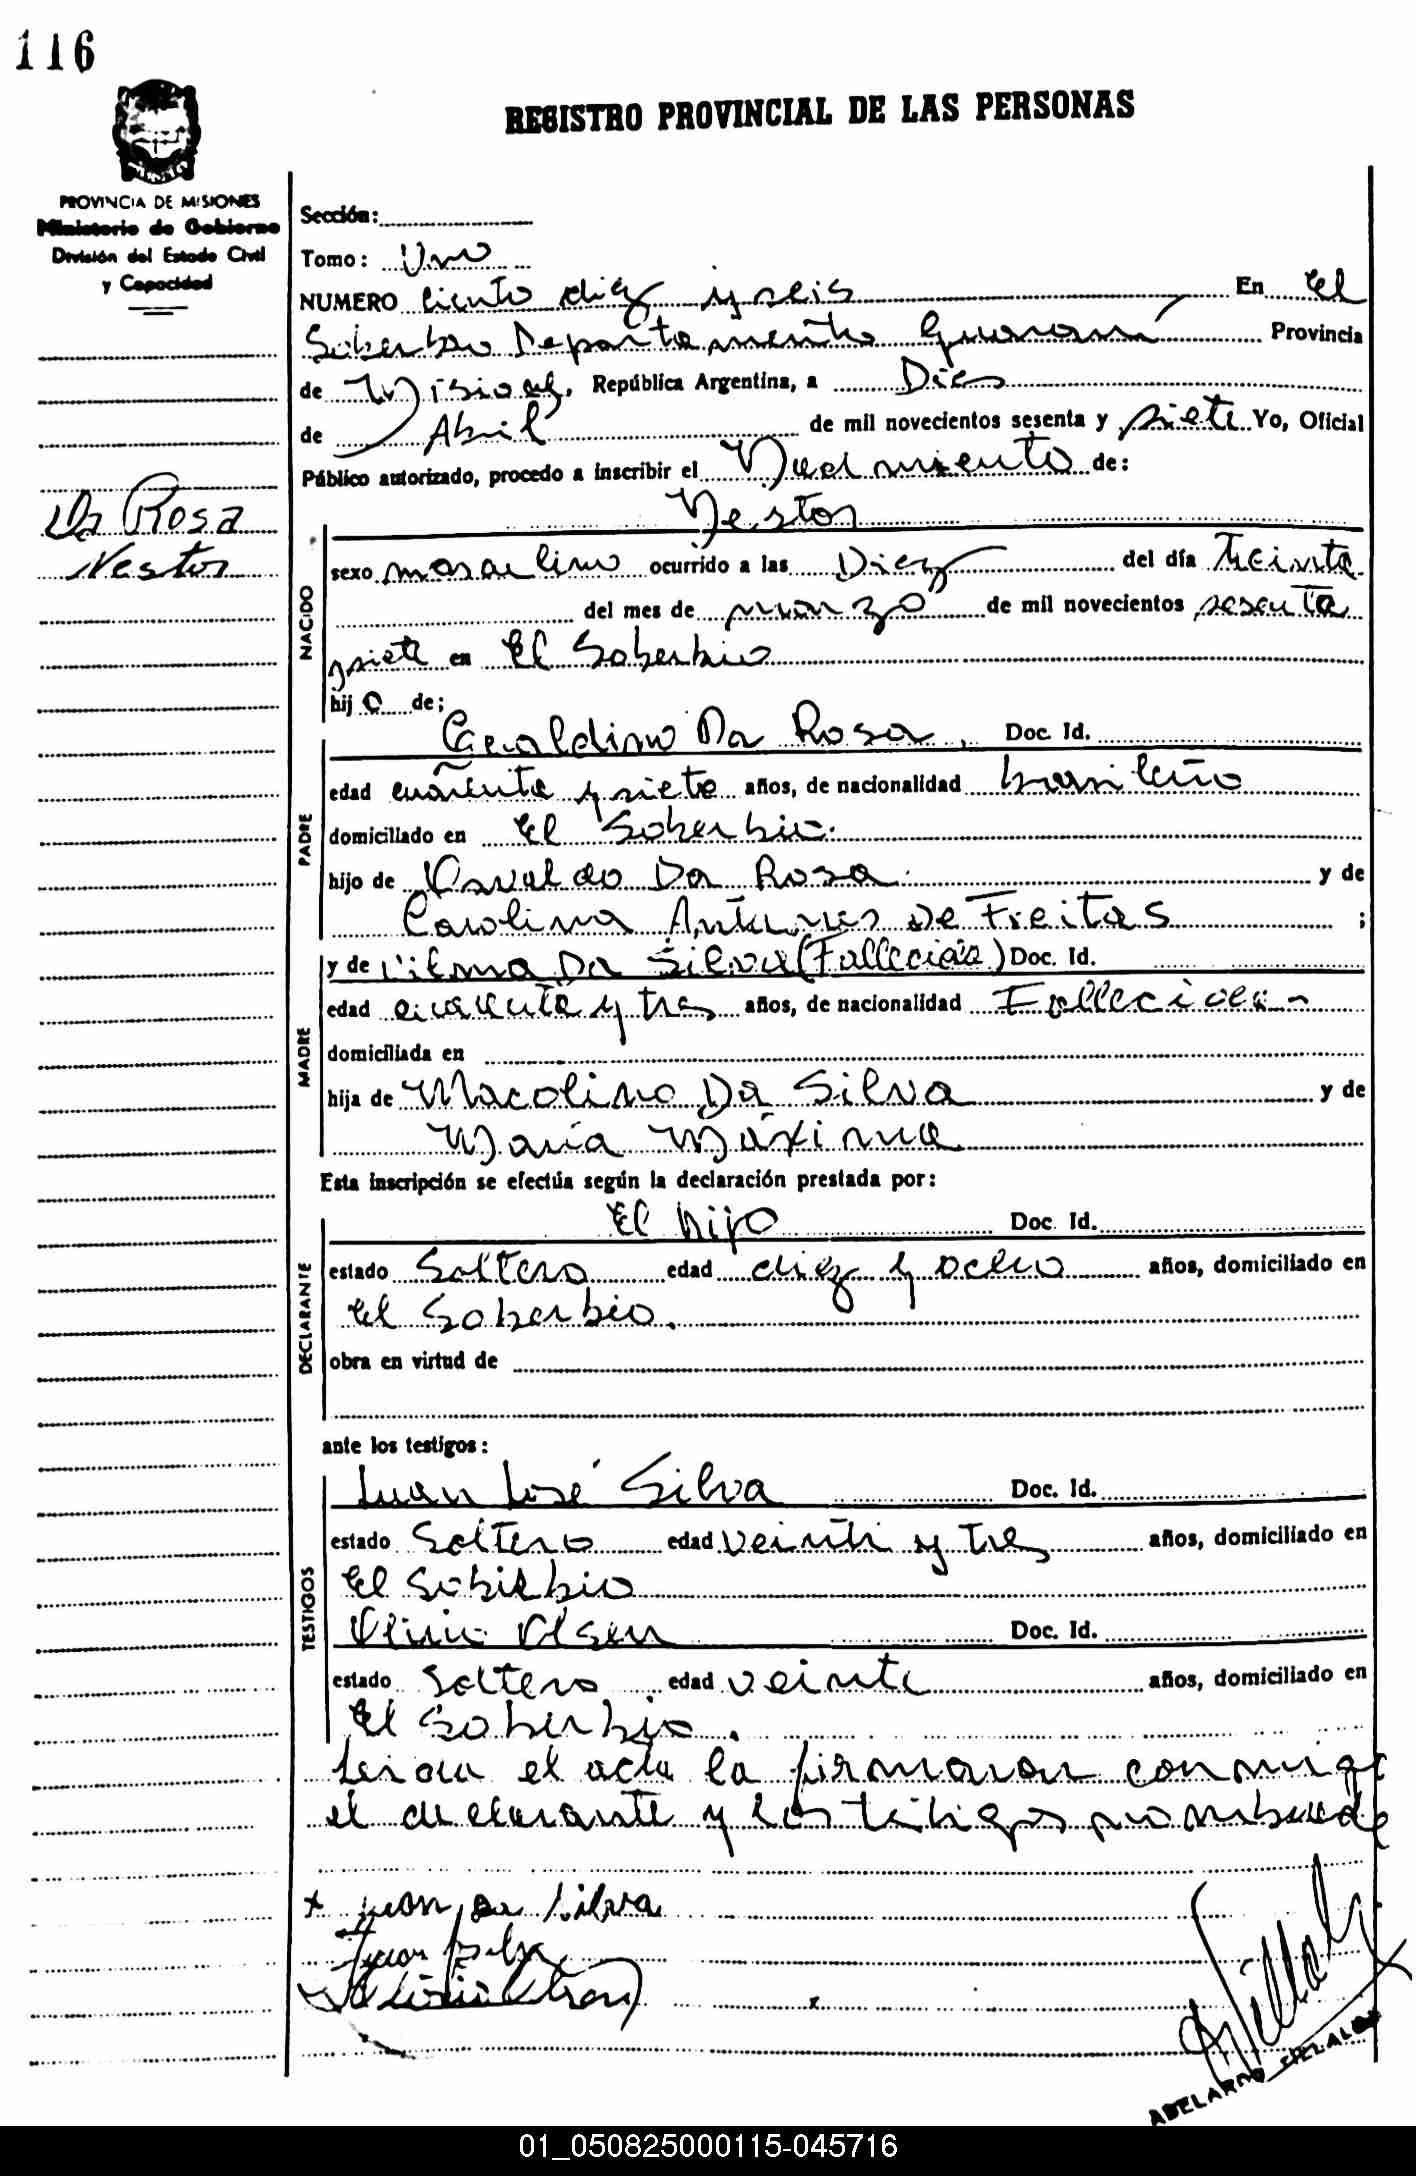 116
REGISTRO PROVINCIAL DE LAS PERSONAS
PROVINCIA DE MISIONES
Ministerio de Gobierno
División del Estado Civil
y Capacidad
Da Rosa
Nestor
Sección:
Tomo: Uno
NUMERO ciento diez y seis En El
Soberbio Departamento Guaraní Provincia
de Misiones, República Argentina, a Dies
de Abril de mil novecientos sesenta y siete Yo, Oficial
Público autorizado, procedo a inscribir el Nacimiento de:
Nestor
NACIDO
sexo masculino ocurrido a las Diez del día treinta
del mes de marzo de mil novecientos sesenta
y siete en El Soberbio
hijo de;
PADRE
Geraldino Da Rosa, Doc. Id.
edad cuarenta y siete años, de nacionalidad brasileño
domiciliado en El Soberbio.
hijo de Osvaldo Da Rosa y de
Carolina Antunes De Freitas ;
MADRE
y de Vilma Da Silva (Fallecida) Doc. Id.
edad cuarenta y tres años, de nacionalidad Fallecida-
domiciliada en
hija de Macolino Da Silva y de
María Máxima
Esta inscripción se efectúa según la declaración prestada por:
DECLARANTE
El hijo Doc. Id.
estado Soltero edad diez y ocho años, domiciliado en
El Soberbio.
obra en virtud de
ante los testigos:
TESTIGOS
Juan José Silva Doc. Id.
estado Soltero edad veinti y tres años, domiciliado en
El Soberbio
Olsen Doc. Id.
estado Soltero edad veinte años, domiciliado en
El Soberbio.
el acta la firmaron conmigo
el declarante y los testigos
x Juan Da Silva
Juan
Villalba
ABELARDO VILLALBA
01_050825000115-045716